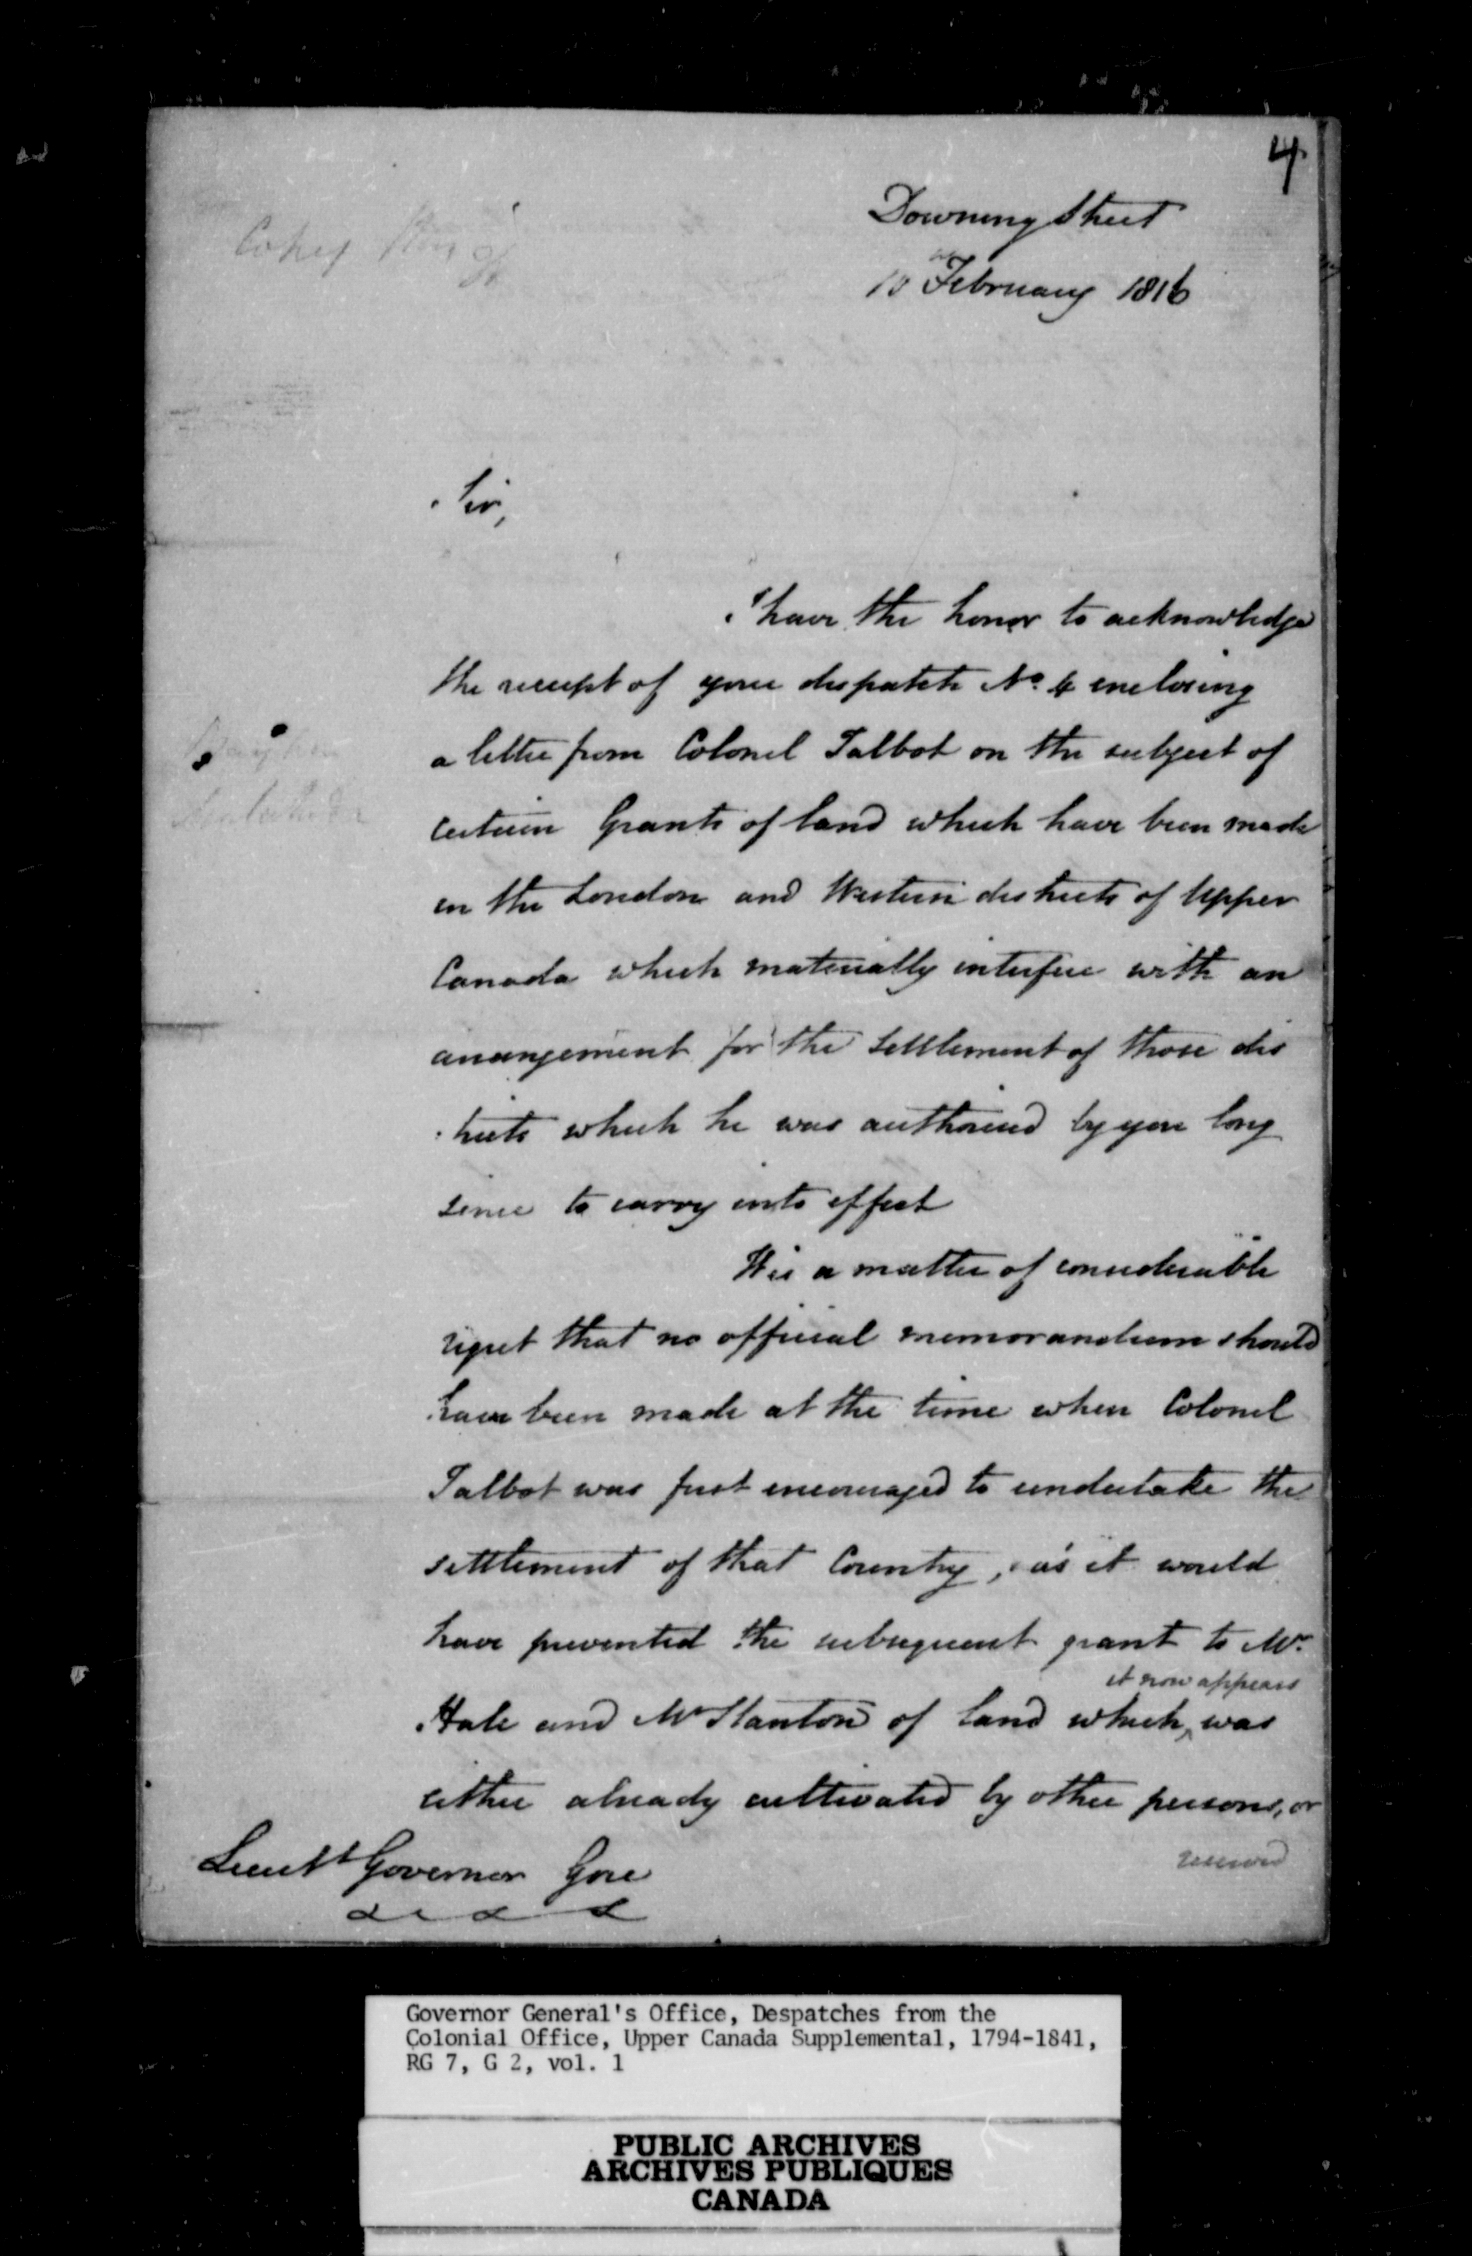 4
Downing Street
10 February 1816
Sir,
I have the honor to acknowledge
the receipt of your dispatch No. 4 enclosing
a letter from Colonel Talbot on the subject of
certain Grants of land which have been made
in the London and Western districts of Upper
Canada which materially interfere with an
arrangement for the settlement of those dis
tricts which he was authorized by you long
since to carry into effect
It is a matter of considerable
regret that no official memorandum should
have been made at the time when Colonel
Talbot was first encouraged to undertake the
settlement of that Country, as it would
have prevented the subsequent grant to Mr.
it now appears
Hale and Mr Stanton of land which was
either already cultivated by other persons, or
reserved
Lieutt Governor Gore
Governor General's Office, Despatches from the
Colonial Office, Upper Canada Supplemental, 1794-1841,
RG 7, G 2, vol. 1
PUBLIC ARCHIVES
ARCHIVES PUBLIQUES
CANADA